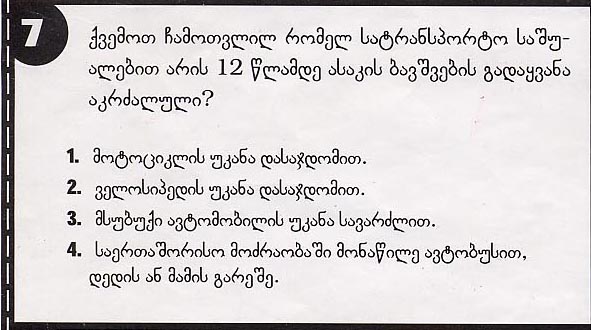 7
ქვემოთ ჩამოთვლილ რომელ სატრანსპორტო საშუ-
ალებით არის 12 წლამდე ასაკის ბავშვების გადაყვანა
აკრძალული?
1. მოტოციკლის უკანა დასაჯდომით.
2. ველოსიპედის უკანა დასაჯდომით.
3. მსუბუქი ავტომობილის უკანა სავარძლით.
4. საერთაშორისო მოძრაობაში მონაწილე ავტობუსით,
დედის ან მამის გარეშე.